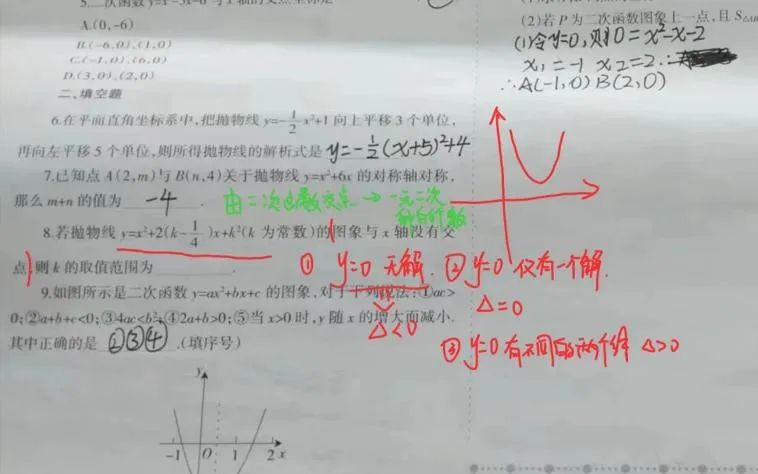 5.二次函数y=x²-5x-6与x轴的交点坐标是
A.(0,-6)
B.(-6,0),(1,0)
C.(-1,0),(6,0)
D.(3,0),(2,0)
二、填空题
6.在平面直角坐标系中,把抛物线y=-1/2x²+1向上平移3个单位,
再向左平移5个单位,则所得抛物线的解析式是 y=-1/2(x+5)²+4
7.已知点A(2,m)与B(n,4)关于抛物线y=x²+6x的对称轴对称,
那么m+n的值为 -4 .
由二次函数交点 → 一元二次
8.若抛物线y=x²+2(k-1/4)x+k²(k为常数)的图象与x轴没有交
点,则k的取值范围为 .
9.如图所示是二次函数y=ax²+bx+c的图象,对于下列说法:①ac>
0;②a+b+c<0;③4ac<b²;④2a+b>0;⑤当x>0时,y随x的增大而减小.
其中正确的是 ②③④ .(填序号)
y
-1 0 1 2 x
(2)若P为二次函数图象上一点,且S△AB
(1)令y=0,则0=x²-x-2
x₁=-1 x₂=2.
∴A(-1,0)B(2,0)
① y=0 无解.
△<0
② y=0 仅有一个解.
△=0
③ y=0 有不同的两个解 △>0